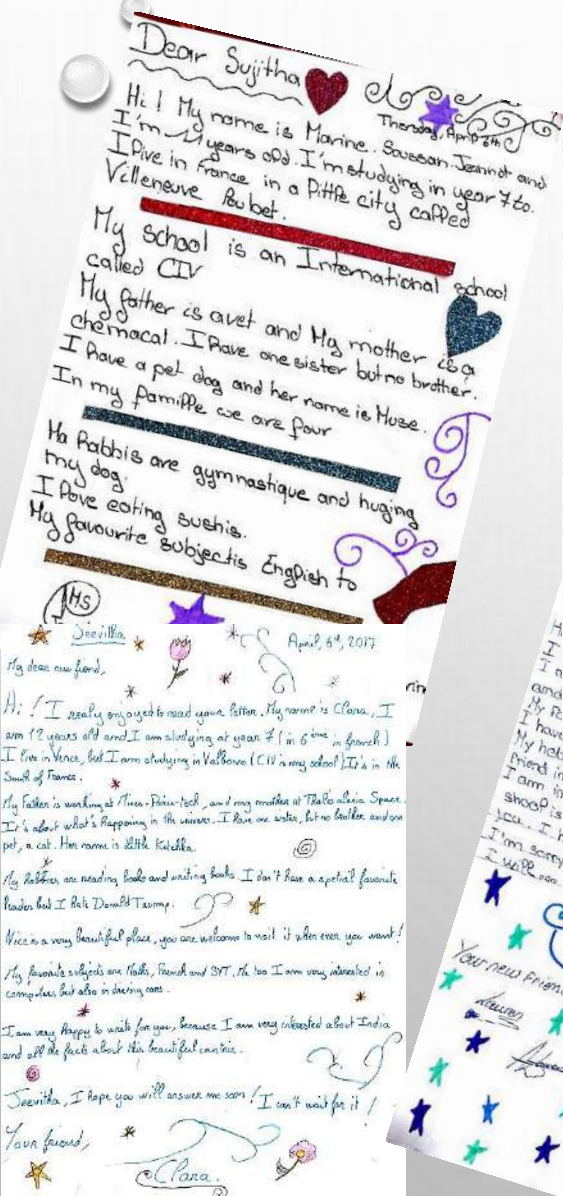 Dear Sujitha
Thursday, April 6th
Hi! My name is Marine. Soussan. Jeannot and
I'm years old. I'm studying in year 7 to.
I live in France in a little city called
Villeneuve Loubet.
My school is an International school
called CIV
My father is a vet and My mother is a
chemacal. I have one sister but no brother.
I have a pet dog and her name is Muse.
In my famille we are four
Ma habbis are gymnastique and huging
my dog.
I love eating sushis.
My favourite subject is English to
MS
Jeevitha
April, 6th, 2017
My dear new fiend,
Hi! I realy enjoyed to read your letter. My name is Clara, I
am 12 years old and I am studying at year 7 (in 6ème in french)
I live in Vence, but I am studying in Valbone (CIV is my school) It's in the
South of France.
My Father is working at Mines-Paris-tech, and my mother at Thales alenia Space.
It's about what's happening in the univers. I have one sister, but no brother and one
pet, a cat. Her name is little Katchka.
My hobbies are reading books and writing books. I don't have a spetial favorite
leader but I hate Donald Trump.
Nice is a very beautiful place, you are welcome to visit it when ever you want!
My favorite subjects are Maths, French and SVT. Me too I am very interested in
computers but also in driving cars.
I am very happy to write for you, because I am very interested about India
and all the facts about this beautiful contrie.
Jeevitha, I hope you will answer me soon! I can't wait for it!
Your friend,
Clara.
I
I
and
I have
My hob
friend in
I am in
shool is
you. I h
I'm sorry
I will
Your new friend
Lauren